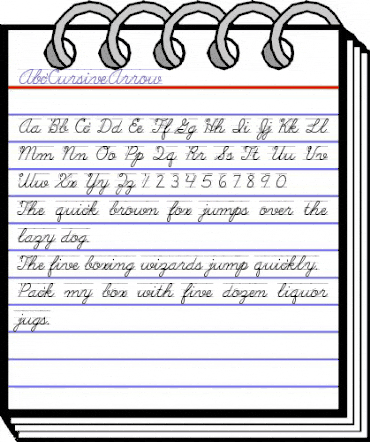 AbcCursiveArrow
Aa Bb Cc Dd Ee Ff Gg Hh Ii Jj Kk Ll
Mm Nn Oo Pp Qq Rr Ss Tt Uu Vv
Ww Xx Yy Zz 1 2 3 4 5 6 7 8 9 0
The quick brown fox jumps over the
lazy dog.
The five boxing wizards jump quickly.
Pack my box with five dozen liquor
jugs.